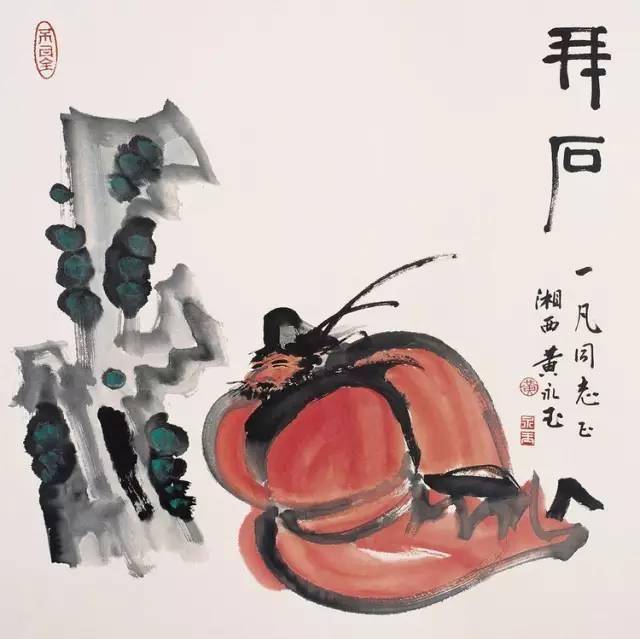 拜石
一凡同志正
湘西黄永玉
黄
永玉